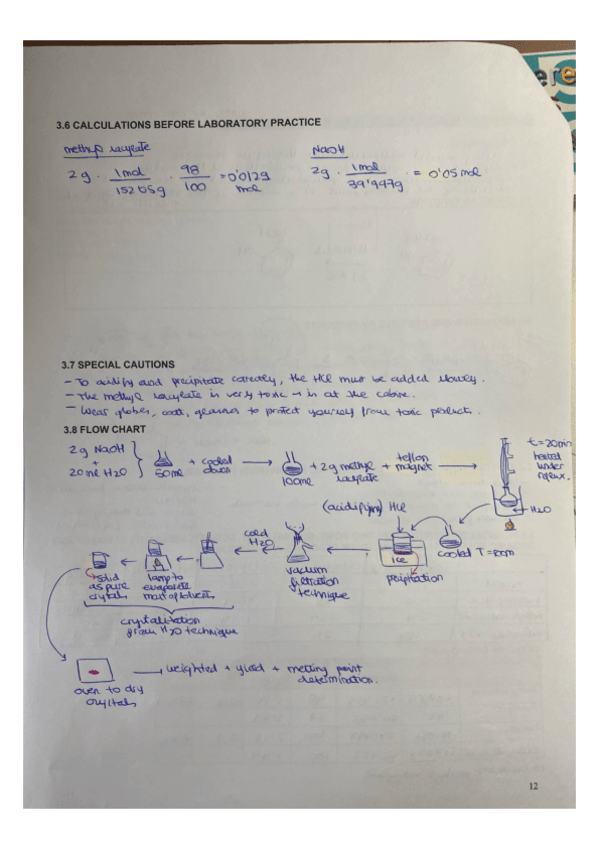 ere
3.6 CALCULATIONS BEFORE LABORATORY PRACTICE
methyl saylate
2g · 1mol / 152'05g · 98 / 100 = 0'0129 mol
NaOH
2g · 1mol / 39'997g · = 0'05 mol
3.7 SPECIAL CAUTIONS
- To acidify and precipitate correctly, the HCl must be added slowly.
- The methyl is very toxic → in at the
- Wear globes, coat, glasses to protect yourself from toxic products.
3.8 FLOW CHART
2g NaOH
+
20ml H2O
50ml
+ cooled down
100ml
+ 2g methyl
+ teflon magnet
t = 20min heated under reflux.
H2O
cooled T = room
(acidifying) HCl
ICE
vacuum filtration technique
cold H2O
lamp to evaporate most of solvents
solid as pure crystals
from H2O technique
oven to dry crystals
→ weighted + yield + melting point determination.
12